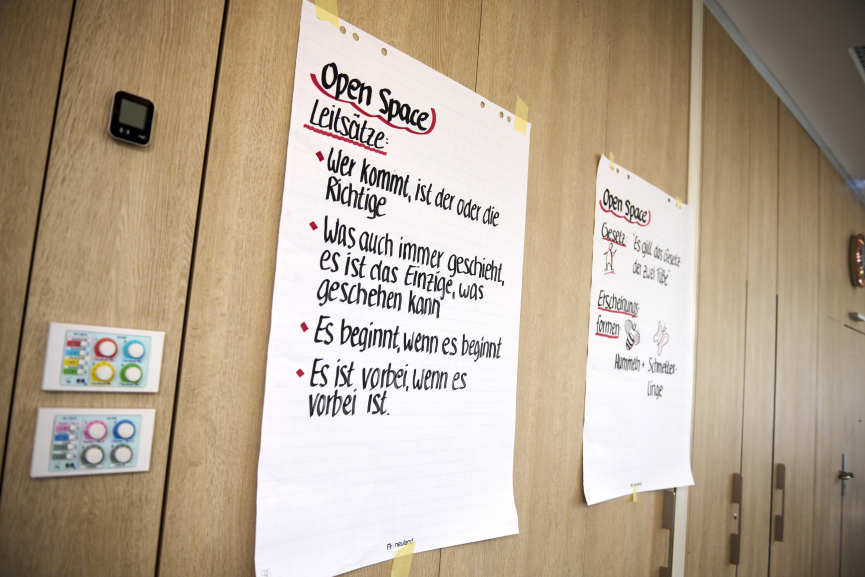 Open Space
Leitsätze:
Wer kommt, ist der oder die
Richtige
Was auch immer geschieht,
es ist das Einzige, was
geschehen kann
Es beginnt, wenn es beginnt
Es ist vorbei, wenn es
vorbei ist.
neuland
Open Space
Gesetz "Es gilt das Gesetz
der zwei Füße"
Erscheinungs-
formen
Hummeln + Schmetter-
linge